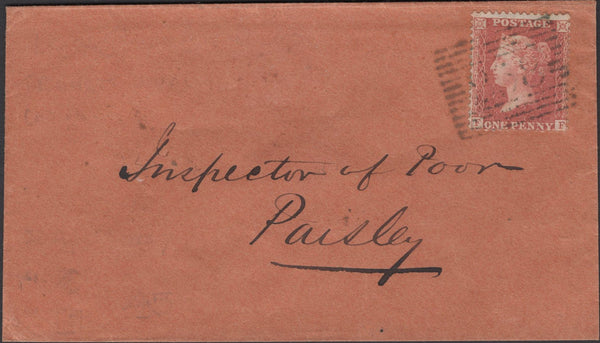 POSTAGE
ONE PENNY
Inspector of Poor
Paisley